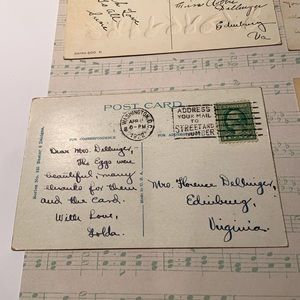 Love
to all
Miss
Dellinger
Edinburg
Va
POST CARD
FOR CORRESPONDENCE
FOR ADDRESS
WASHINGTON, D.C.
APR
6-PM
ADDRESS
YOUR MAIL
TO
STREET AND
NUMBER
Dear Mrs. Dellinger,
The Eggs were
beautiful, many
thanks for them
and the Card.
With Love,
Mrs Florence Dellinger,
Edinburg,
Virginia.